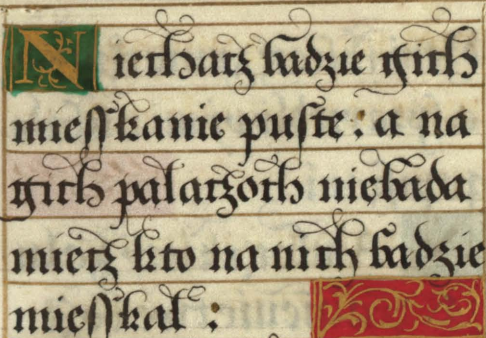 Niechacz badzie gich
miesſkanie puſte: a na
gich palaczoch niebada
miecz kto na nich badzie
miesſkal: